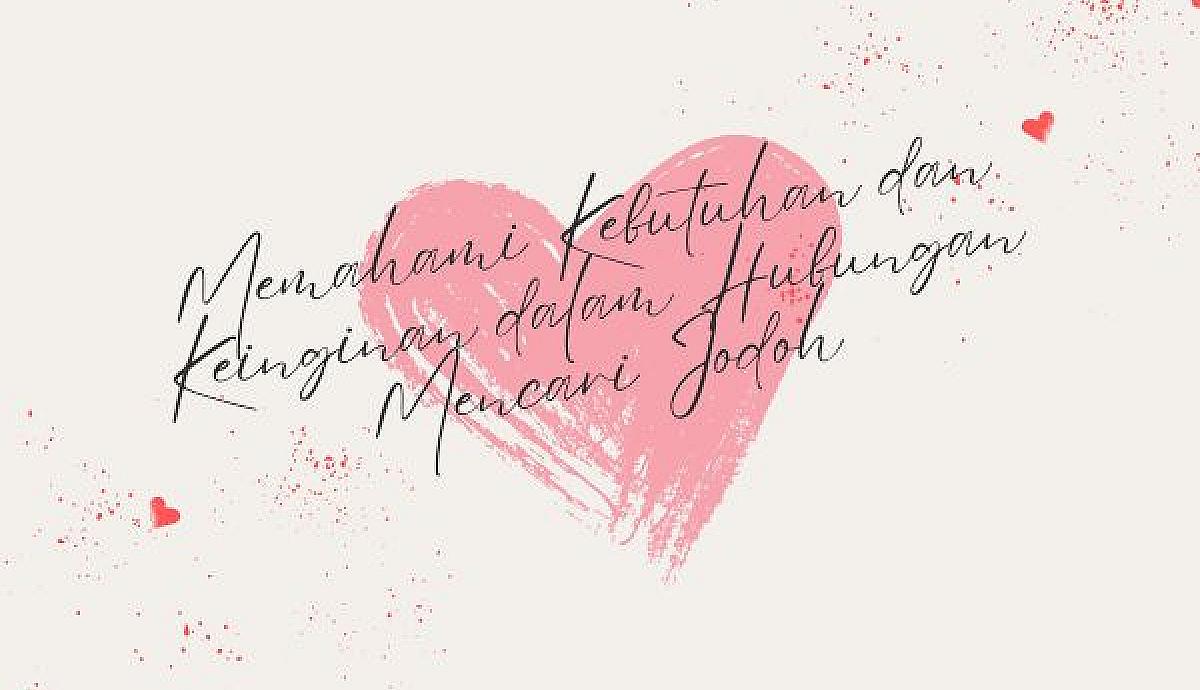 Memahami Kebutuhan dan
Keinginan dalam Hubungan
Mencari Jodoh